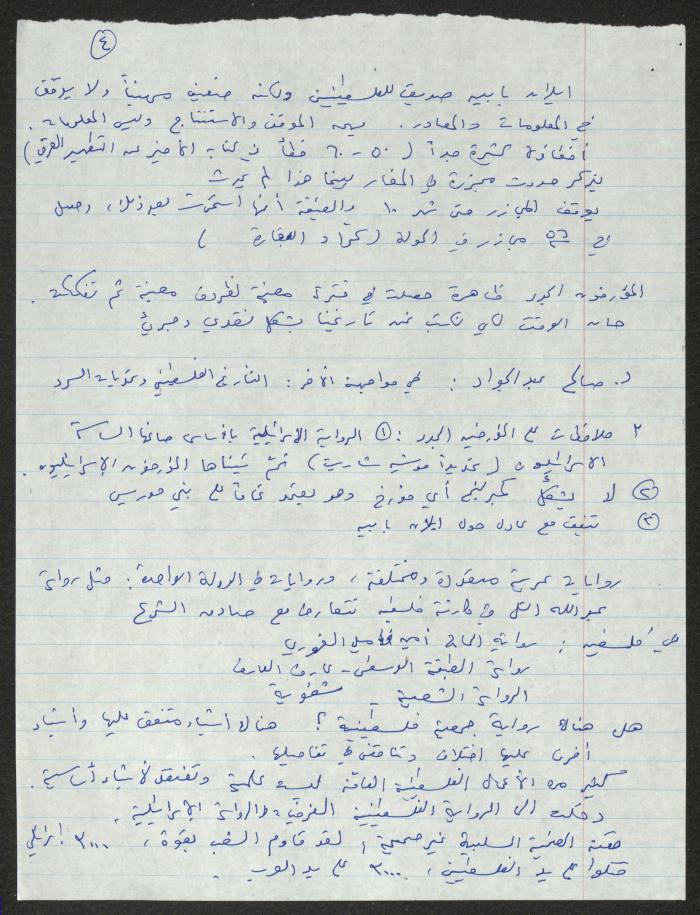 ٤
ايلان بابيه صديق للفلسطينيين ولكنه ضعيف مهنياً ولا يوثق
في المعلومات والمصادر. يهمه الموقف والاستنتاج وليس المعلومات.
أخطاؤه كثيرة جداً ( ٥٠ - ٦٠ خطأ في كتابه الأخير عن التطهير العرقي )
يذكر حدوث مجزرة في المغار بينما هذا لم يحدث
يوقف المجازر حتى شهر ١٠ والحقيقة أنها استمرت بعد ذلك، وحصل
في مجازر في الجولة ( و )
المؤرخون الجدد ظاهرة حصلت في فترة معينة لظروف معينة ثم تفككت.
حان الوقت لكي نكتب نحن تاريخنا بشكل نقدي وجريء
د. صالح عبد الجواد : في مواجهة الآخر : التاريخ الفلسطيني وتحديات السرد
٢ ملاحظات على المؤرخين الجدد : ① الرواية الاسرائيلية بالأساس صاغها الساسة
الاسرائيليون ( تحديداً موشيه شاريت ) ثم تبناها المؤرخون الإسرائيليون.
② لا يشكل أي مؤرخ وهو يعتمد تماماً على بني موريس
③ تتفق مع عادل حول ايلان بابيه
روايات عربية متعددة ومختلفة، وروايات في الدولة الواحدة : مثل رواية
عبدالله التل في كارثة فلسطين تتعارض مع صادق الشرع
في فلسطين : رواية الحاج أمين الغوري
رواية الطبقة الوسطى - عارف العارف
الرواية الشعبية - شفوية
هل هناك رواية جمعية فلسطينية ؟ هناك أشياء متفق عليها وأشياء
أخرى عليها اختلاف وتناقض في تفاصيلها.
كثير من الأعمال الفلسطينية العامة ليست علمية وتفتقد لأشياء أساسية.
دخلت الى الرواية الفلسطينية الرواية الإسرائيلية،
الضحية السلبية غير صحيحة، لقد قاوم الشعب بقوة، ٣٠٠٠ إسرائيلي
قتلوا على يد الفلسطينيين، ٣٠٠٠ على يد العرب.